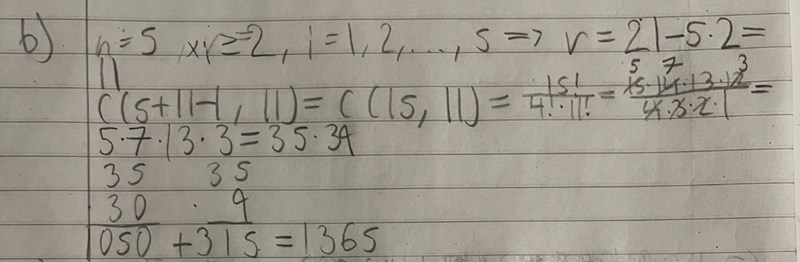 b) n=5, xi≥2, i=1,2,...,5 => r=21-5·2=
11
C(5+11-1, 11) = C(15, 11) = 15!/4!·11! = 15·14·13·12/4·3·2·1 =
5 7 3
5·7·13·3=35·39
35 35
30 · 9
1050 + 315 = 1365